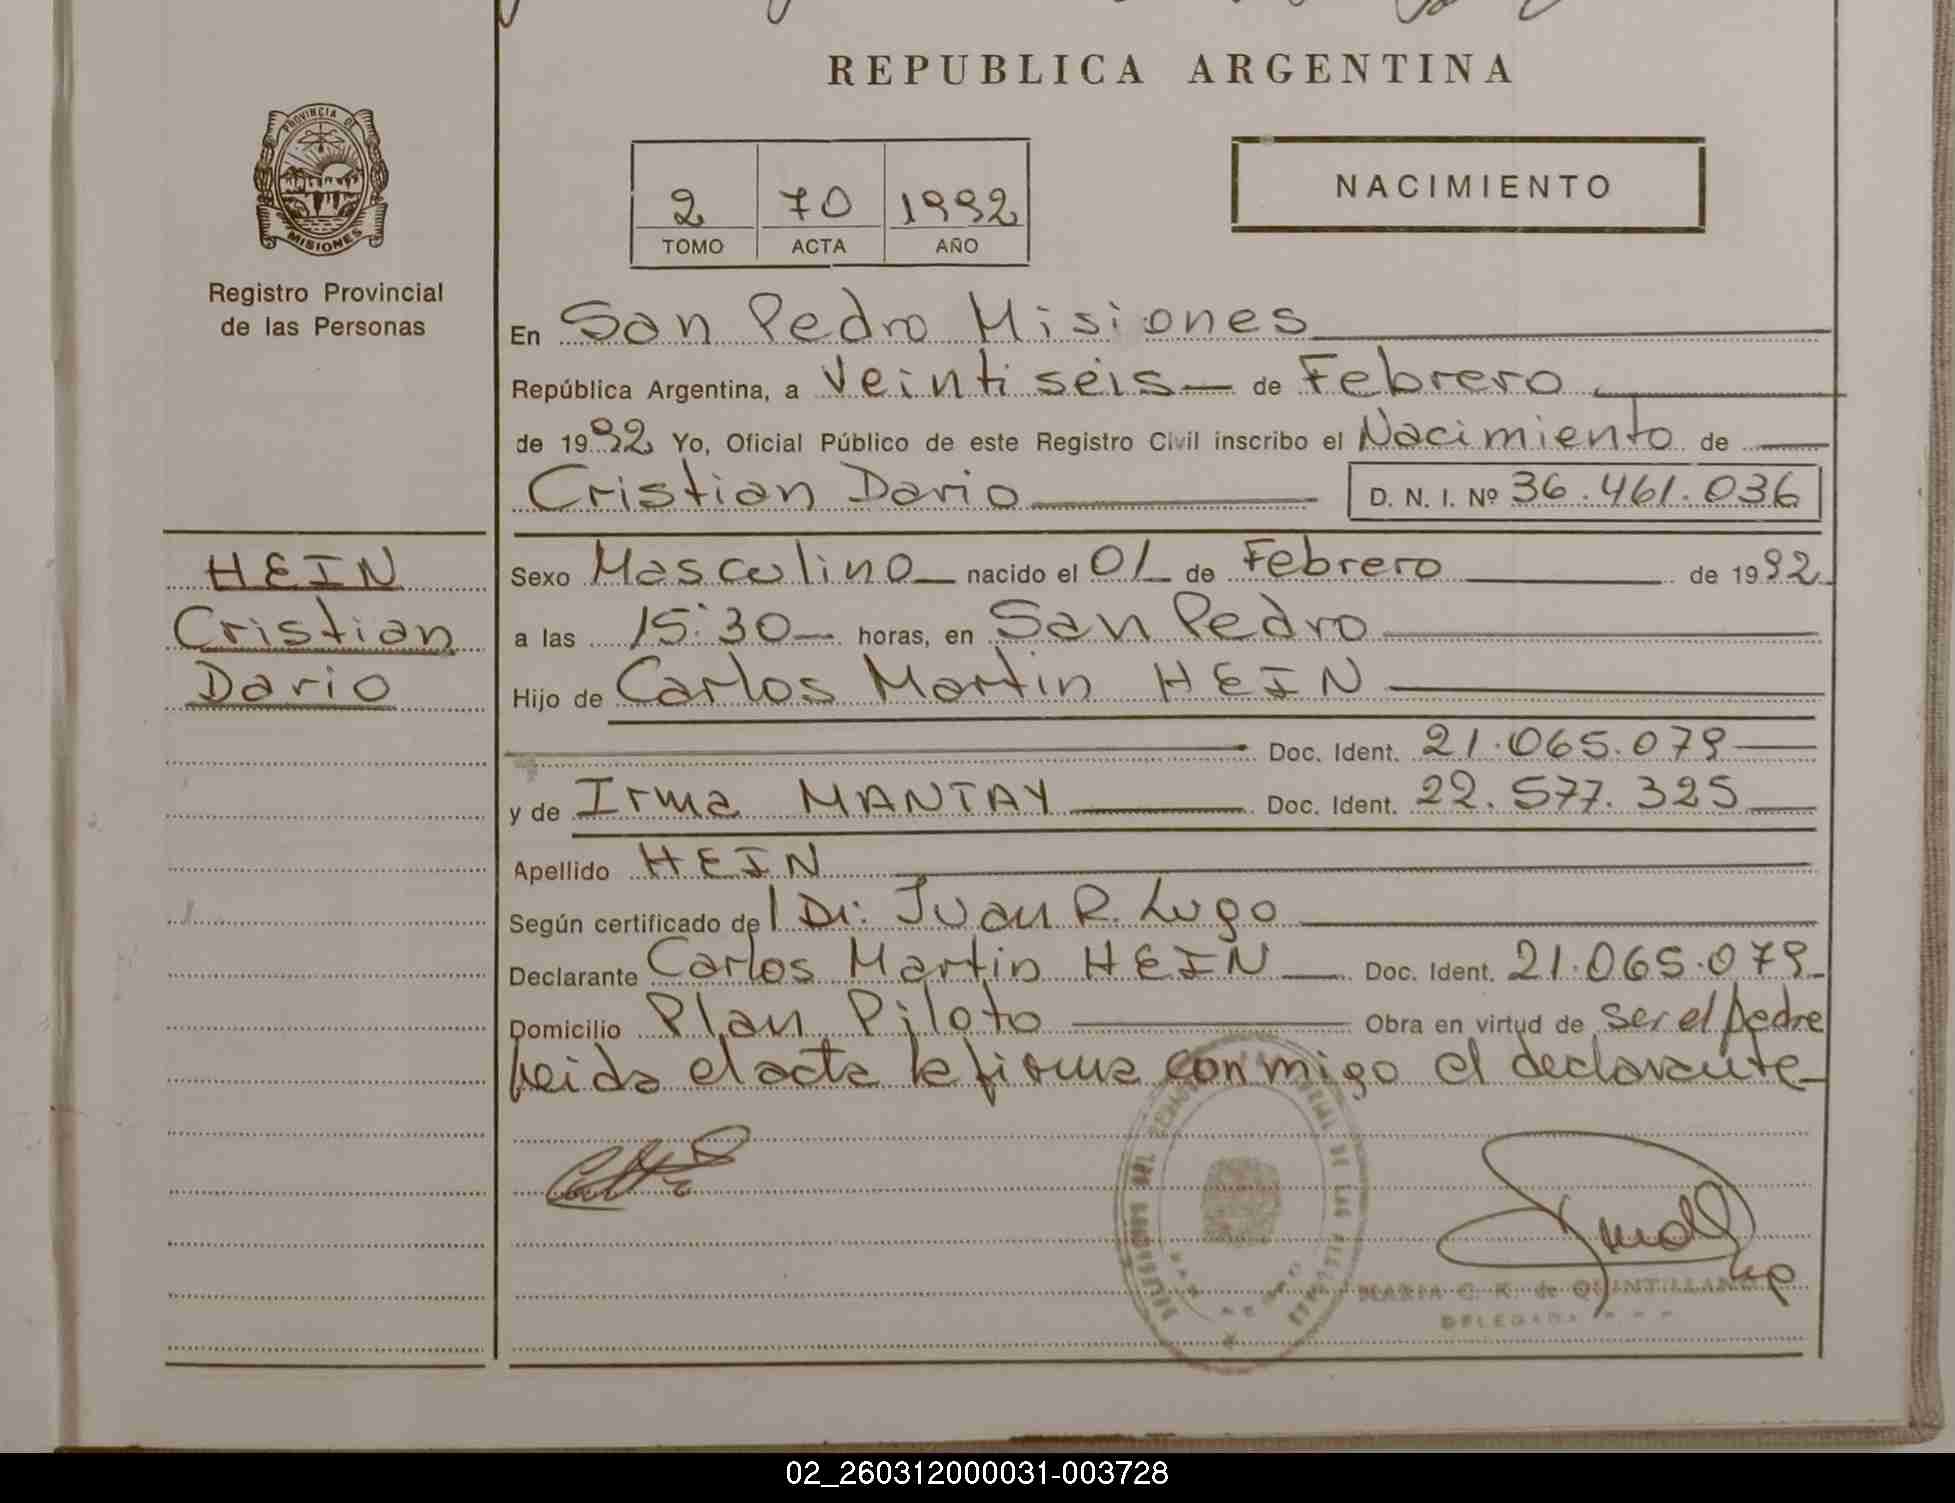 REPUBLICA ARGENTINA
PROVINCIA DE
MISIONES
Registro Provincial
de las Personas
2 70 1992
TOMO ACTA AÑO
NACIMIENTO
En San Pedro Misiones
República Argentina, a Veintiséis de Febrero
de 1992 Yo, Oficial Público de este Registro Civil inscribo el Nacimiento de
Cristian Dario D. N. I. Nº 36.461.036
HEIN
Cristian
Dario
Sexo Masculino nacido el 01 de Febrero de 1992
a las 15:30 horas, en San Pedro
Hijo de Carlos Martin HEIN
Doc. Ident. 21.065.079
y de Irma MANTAY Doc. Ident. 22.577.325
Apellido HEIN
Según certificado de Dr. Juan R. Lugo
Declarante Carlos Martin HEIN Doc. Ident. 21.065.079
Domicilio Plan Piloto Obra en virtud de ser el padre
Leida el acta la firma conmigo el declarante
MARIA C. K. de QUINTILLANA
DELEGADA
02_260312000031-003728